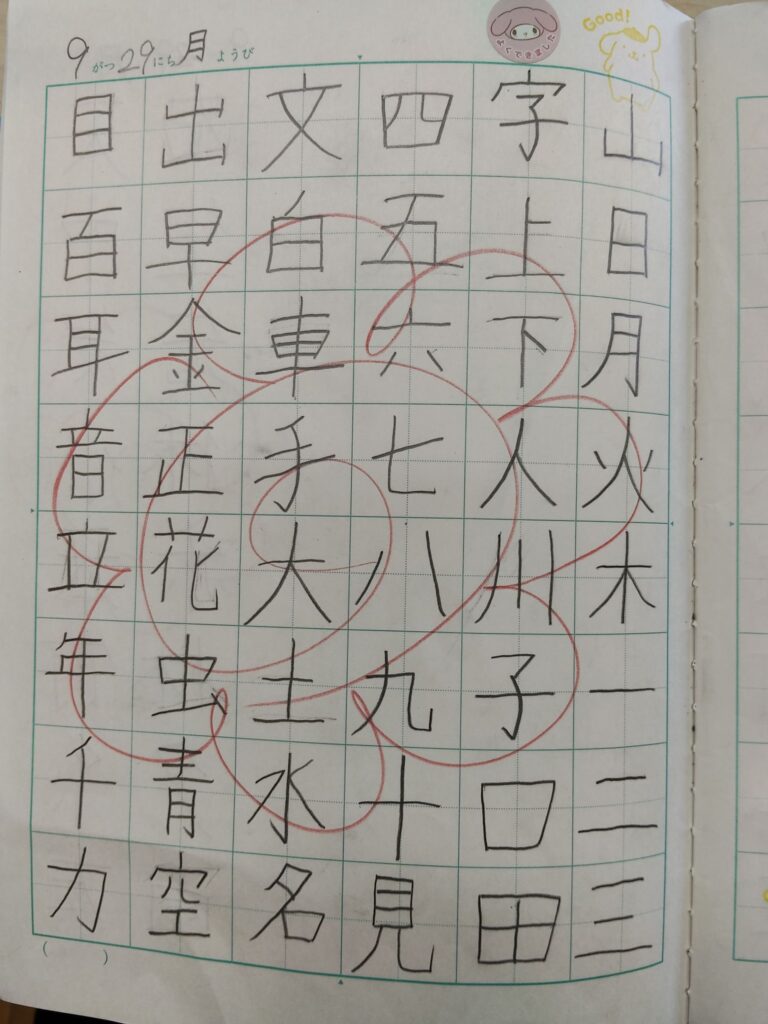 9がつ29にち月ようび
よくできました
Good!
山日月火木一二三
字上下人川子口田
四五六七八九十見
文白車手大土水名
出早金正花虫青空
目百耳音立年千力
( )